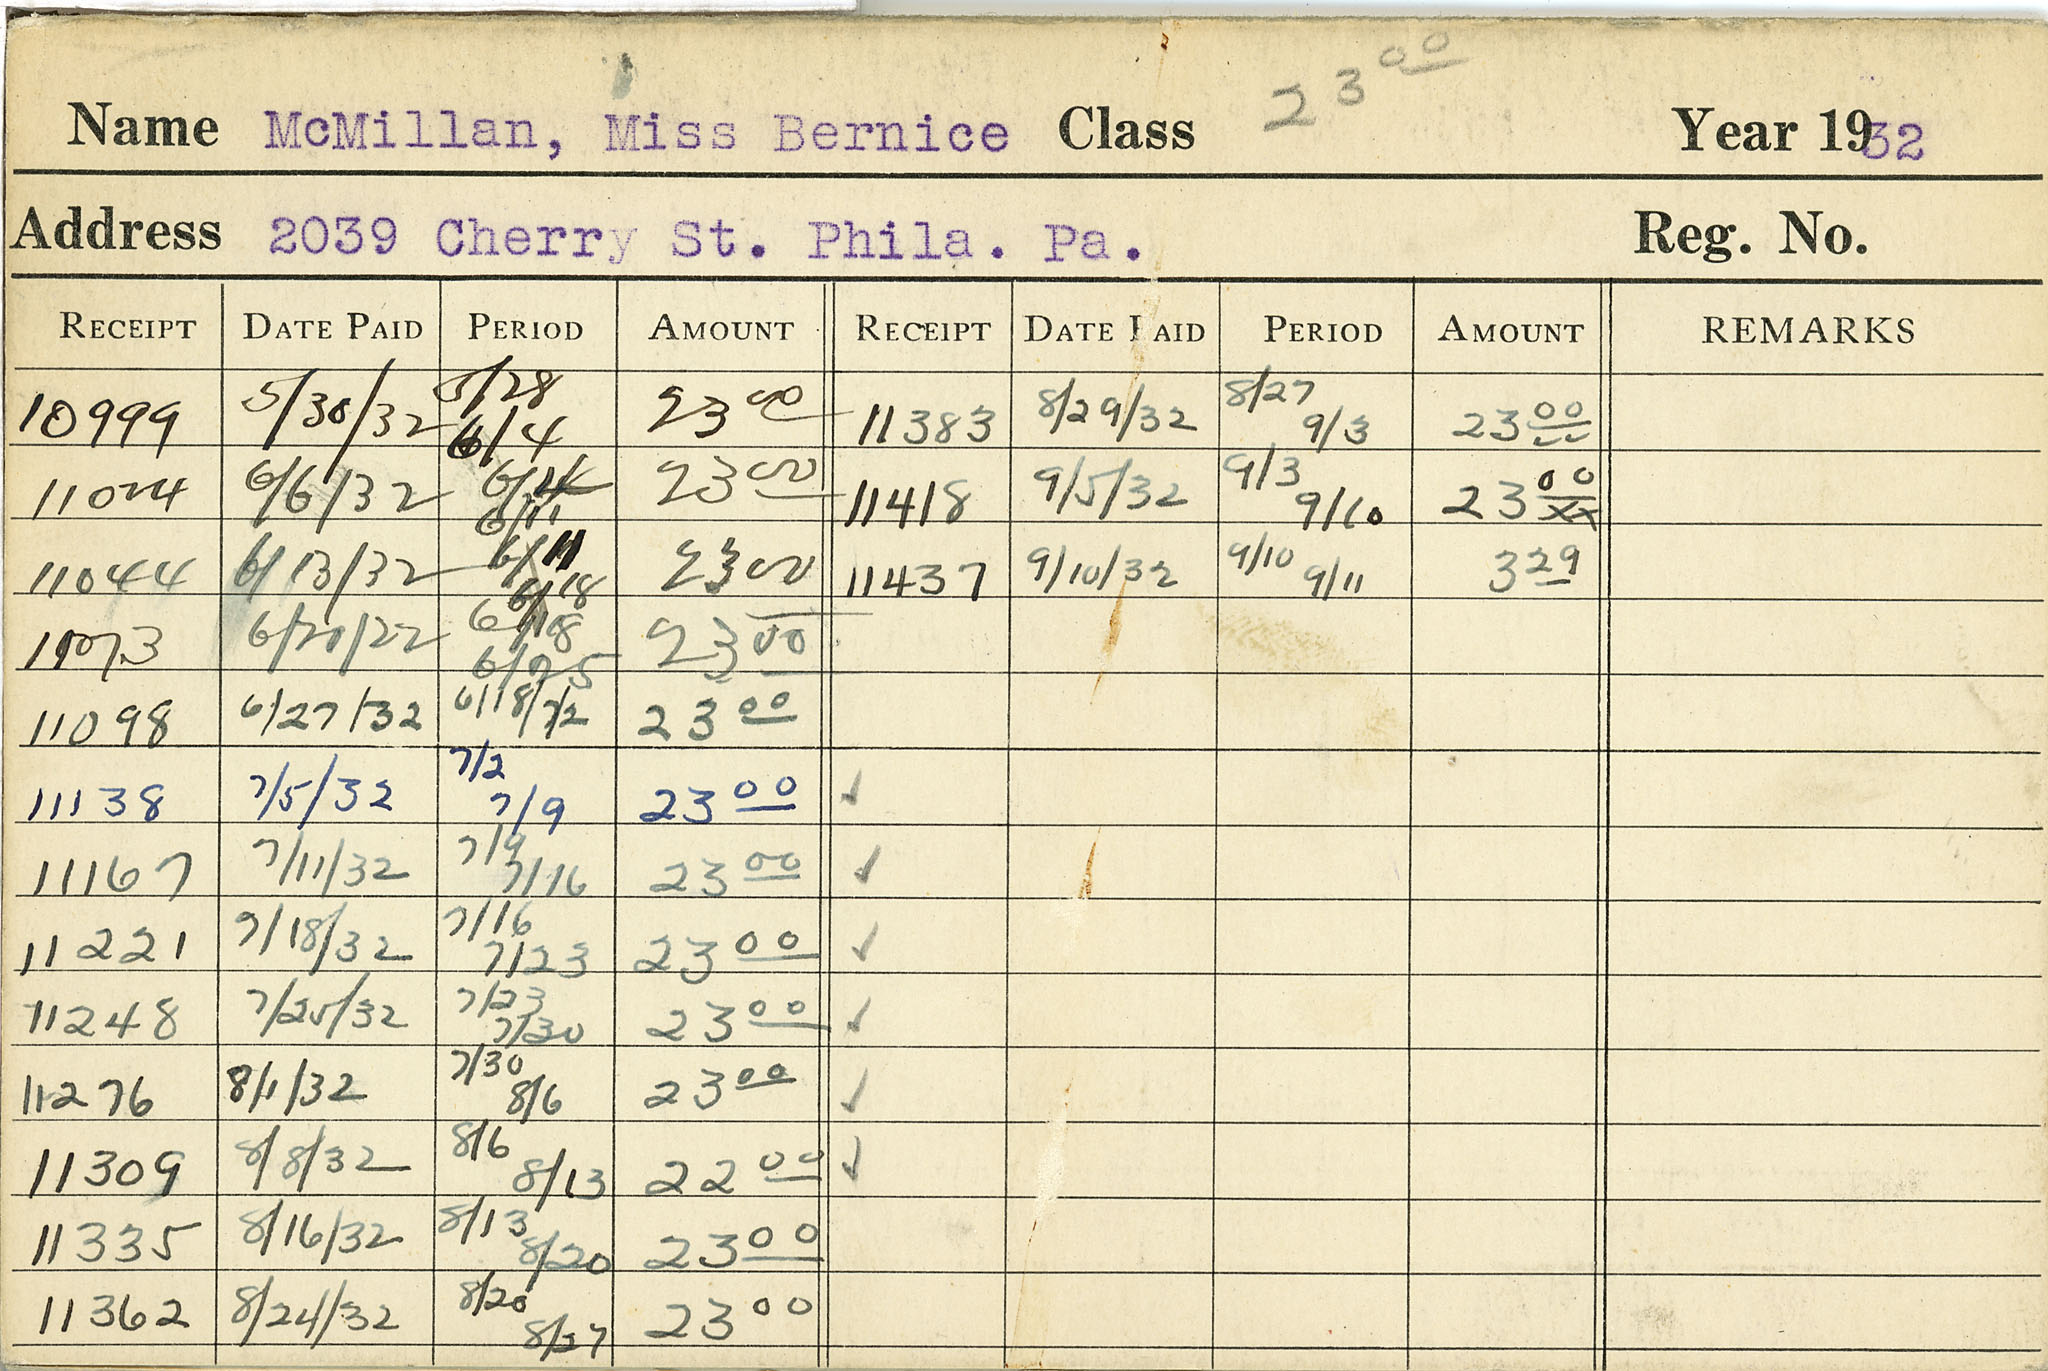 23 00
Name McMillan, Miss Bernice Class Year 1932
Address 2039 Cherry St. Phila. Pa. Reg. No.
RECEIPT DATE PAID PERIOD AMOUNT RECEIPT DATE PAID PERIOD AMOUNT REMARKS
10999 5/30/32 5/28 6/4 23 00 11383 8/29/32 8/27 9/3 23 00
11024 6/6/32 6/4 6/11 23 00 11418 9/5/32 9/3 9/10 23 00 xx
11044 6/13/32 6/11 6/18 23 00 11437 9/10/32 9/10 9/11 3 29
11073 6/20/22 6/18 6/25 23 00
11098 6/27/32 6/18/7/2 23 00
11138 7/5/32 7/2 7/9 23 00 ✓
11167 7/11/32 7/9 7/16 23 00 ✓
11221 7/18/32 7/16 7/23 23 00 ✓
11248 7/25/32 7/23 7/30 23 00 ✓
11276 8/1/32 7/30 8/6 23 00 ✓
11309 8/8/32 8/6 8/13 22 00 ✓
11335 8/16/32 8/13 8/20 23 00
11362 8/24/32 8/20 8/27 23 00